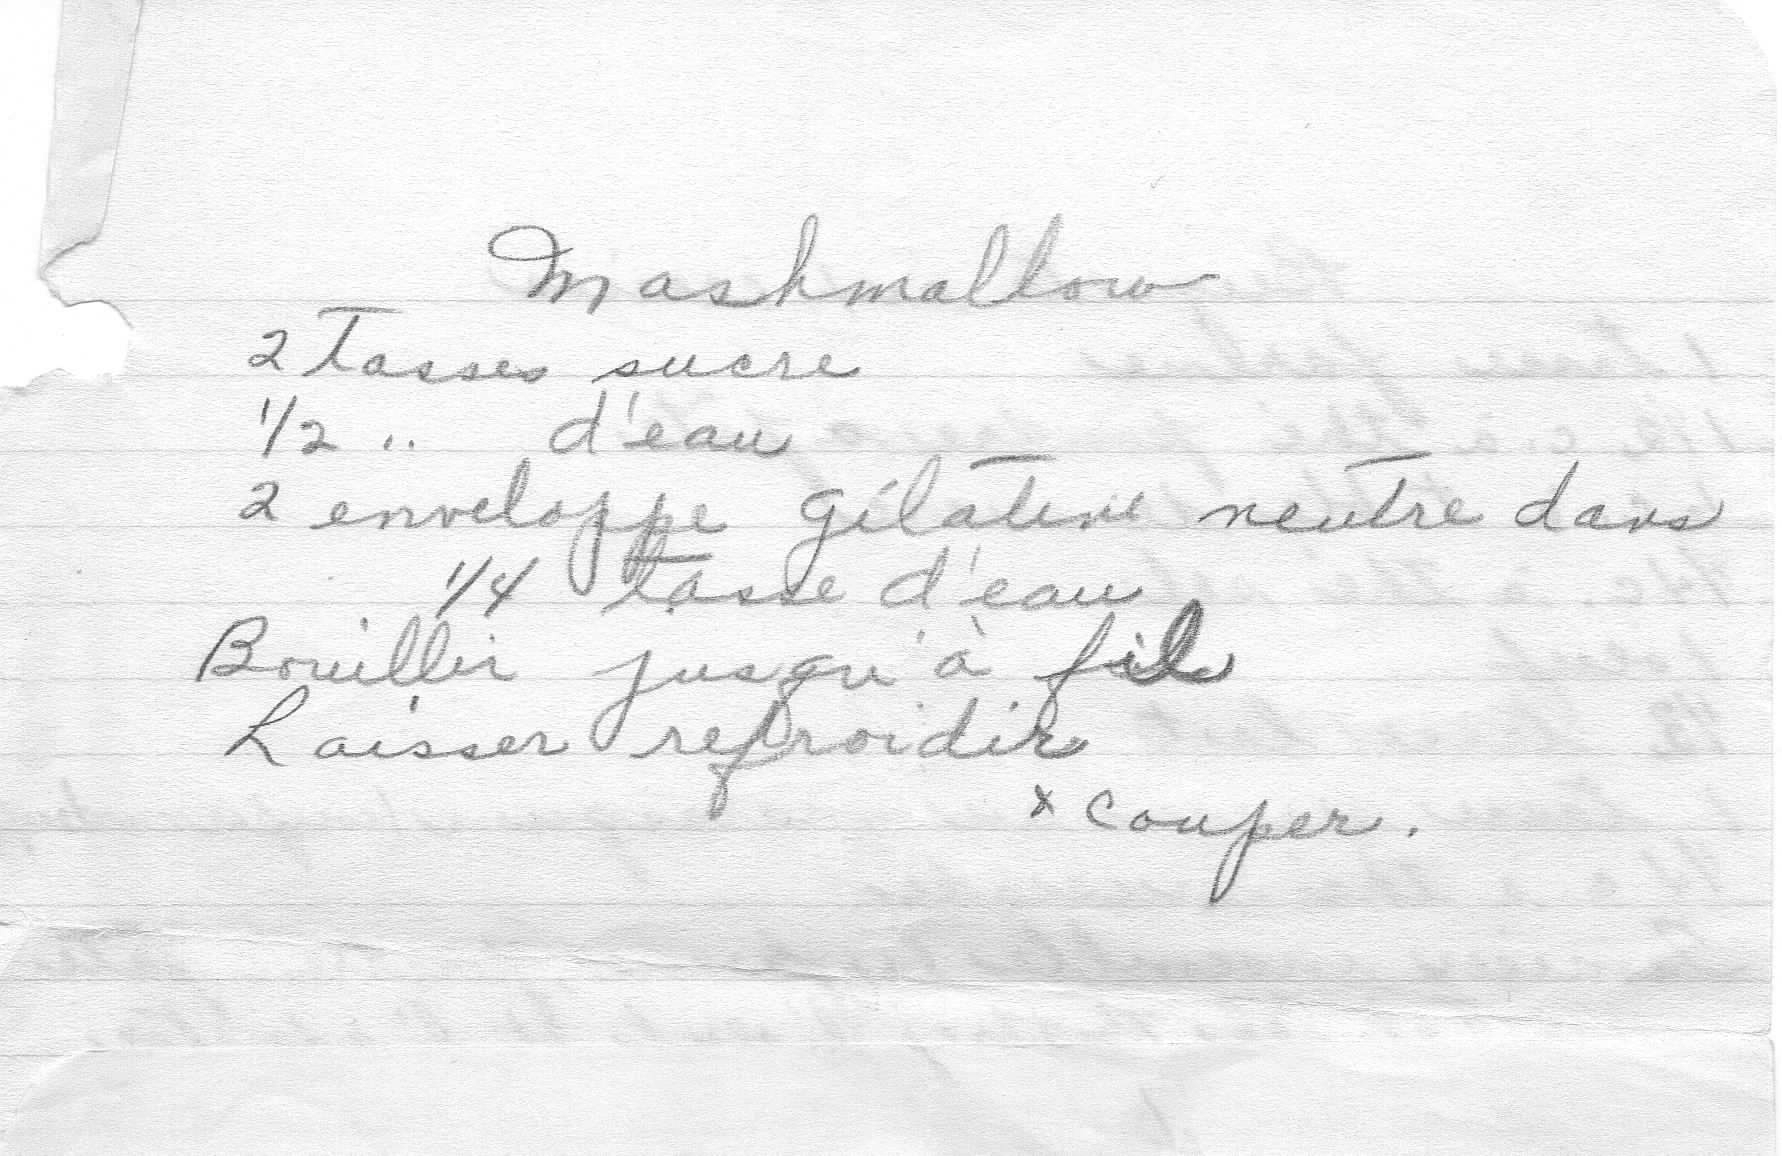 Mashmallow
2 Tasses sucre
1/2 " d'eau
2 enveloppe gélatine neutre dans
1/4 tasse d'eau
Bouillir jusqu'à fil
Laisser refroidir
x couper.